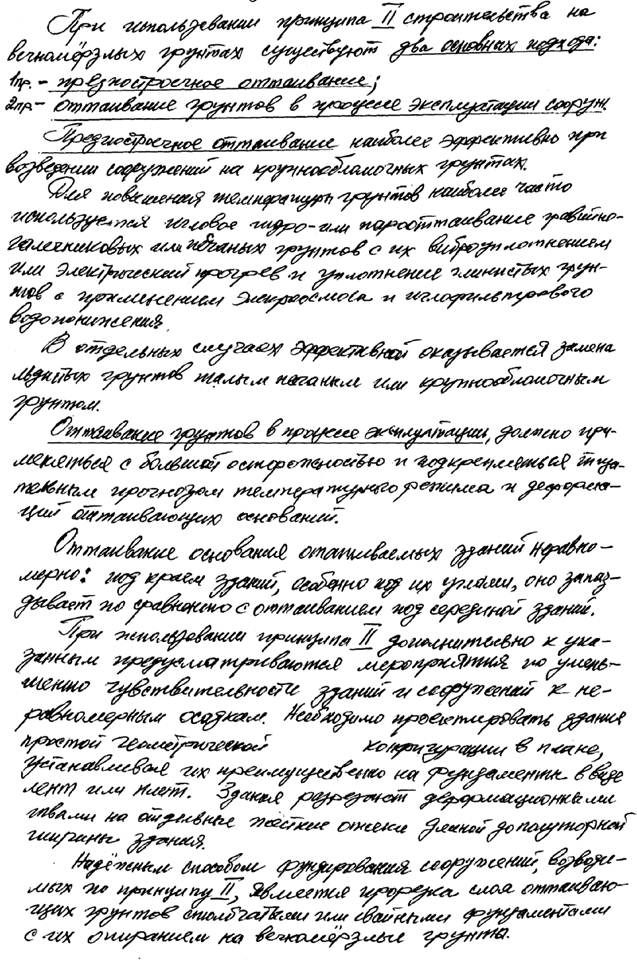 При использовании принципа II строительства на
вечномёрзлых грунтах существуют два основных подхода:
1пр. – предпостроечное оттаивание;
2пр – оттаивание грунтов в процессе эксплуатации сооруж.
Предпостроечное оттаивание наиболее эффективно при
возведении сооружений на крупнообломочных грунтах.
Для повышения температуры грунтов наиболее часто
используется игловое гидро- или парооттаивание гравийно-
галечниковых или песчаных грунтов с их виброуплотнением
или электрический прогрев и уплотнение глинистых грун-
тов с применением электроосмоса и иглофильтрового
водопонижения.
В отдельных случаях эффективной оказывается замена
льдистых грунтов талым песчаным или крупнообломочным
грунтом.
Оттаивание грунтов в процессе эксплуатации, должно при-
меняться с большой осторожностью и подкрепляться тща-
тельным прогнозом температурного режима и деформа-
ций оттаивающих оснований.
Оттаивание основания отапливаемых зданий неравно-
мерно: под краем зданий, особенно под их углами, оно запаз-
дывает по сравнению с оттаиванием под серединой зданий.
При использовании принципа II дополнительно к ука-
занным предусматриваются мероприятия по умень-
шению чувствительности зданий и сооружений к не-
равномерным осадкам. Необходимо проектировать здания
простой геометрической конфигурации в плане,
устанавливая их преимущественно на фундаменты в виде
лент или плит. Здания разрезают деформационными
швами на отдельные жёсткие отсеки длиной до полуторной
ширины здания.
Надёжным способом фундирования сооружений, возводи-
мых по принципу II, является прорезка слоя оттаиваю-
щих грунтов столбчатыми или свайными фундаментами
с их опиранием на вечномёрзлые грунты.